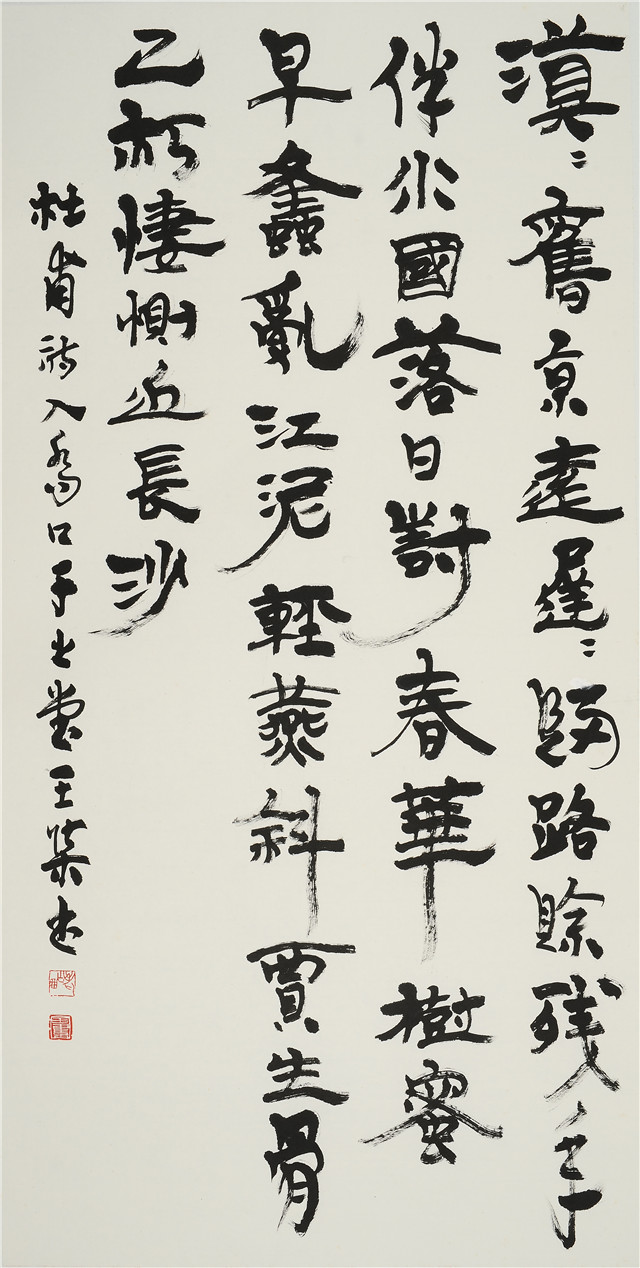 漠〻舊京遠遲〻歸路賒残年
伴水國落日對春華樹蜜
早蠭亂江泥輕燕斜賈生骨
已朽悽惻近長沙
杜甫詩入喬口 王 书